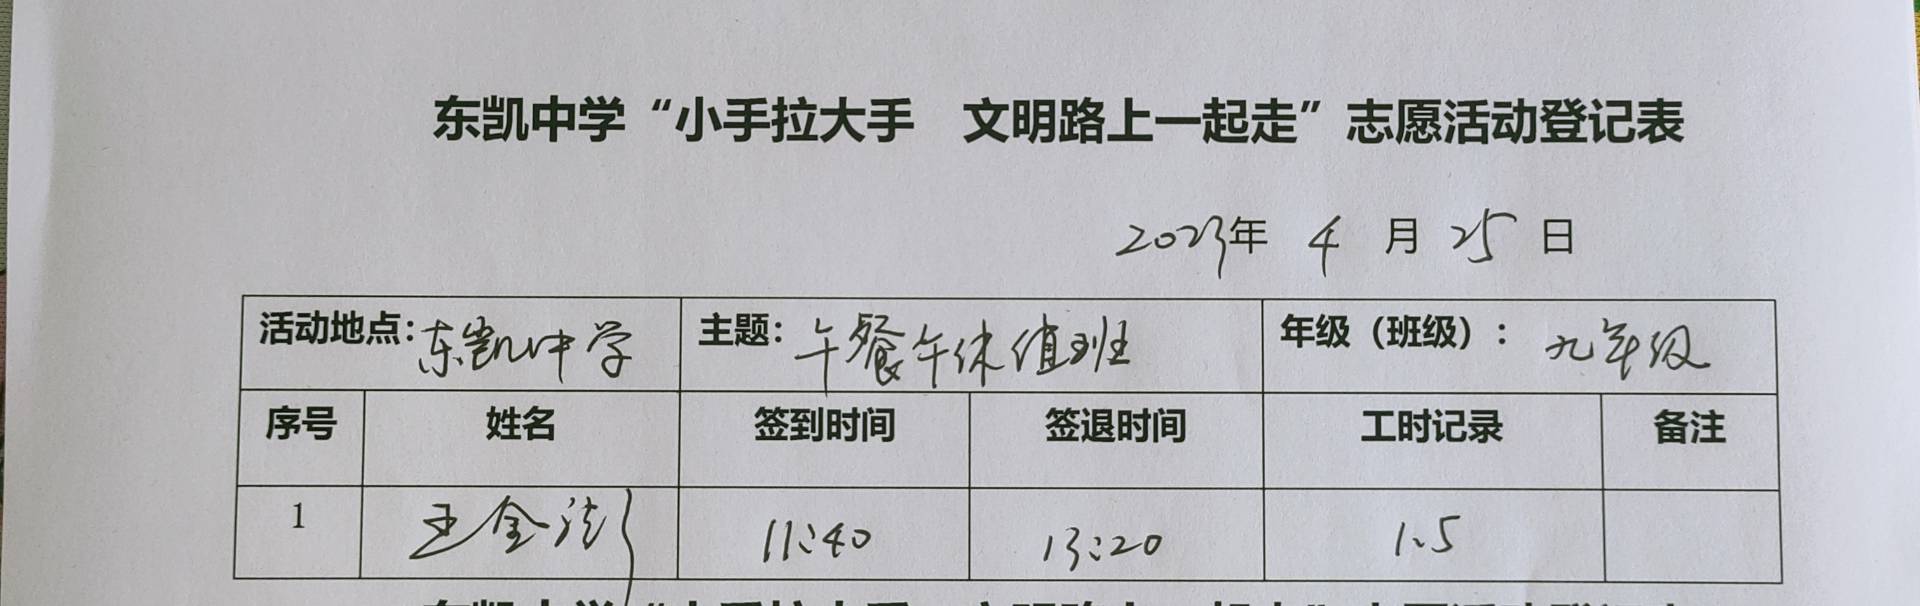 东凯中学“小手拉大手 文明路上一起走”志愿活动登记表
2023年 4 月 25 日
活动地点：东凯中学 主题：午餐午休值班 年级（班级）：九年级
序号 姓名 签到时间 签退时间 工时记录 备注
1 王金 11:40 13:20 1.5